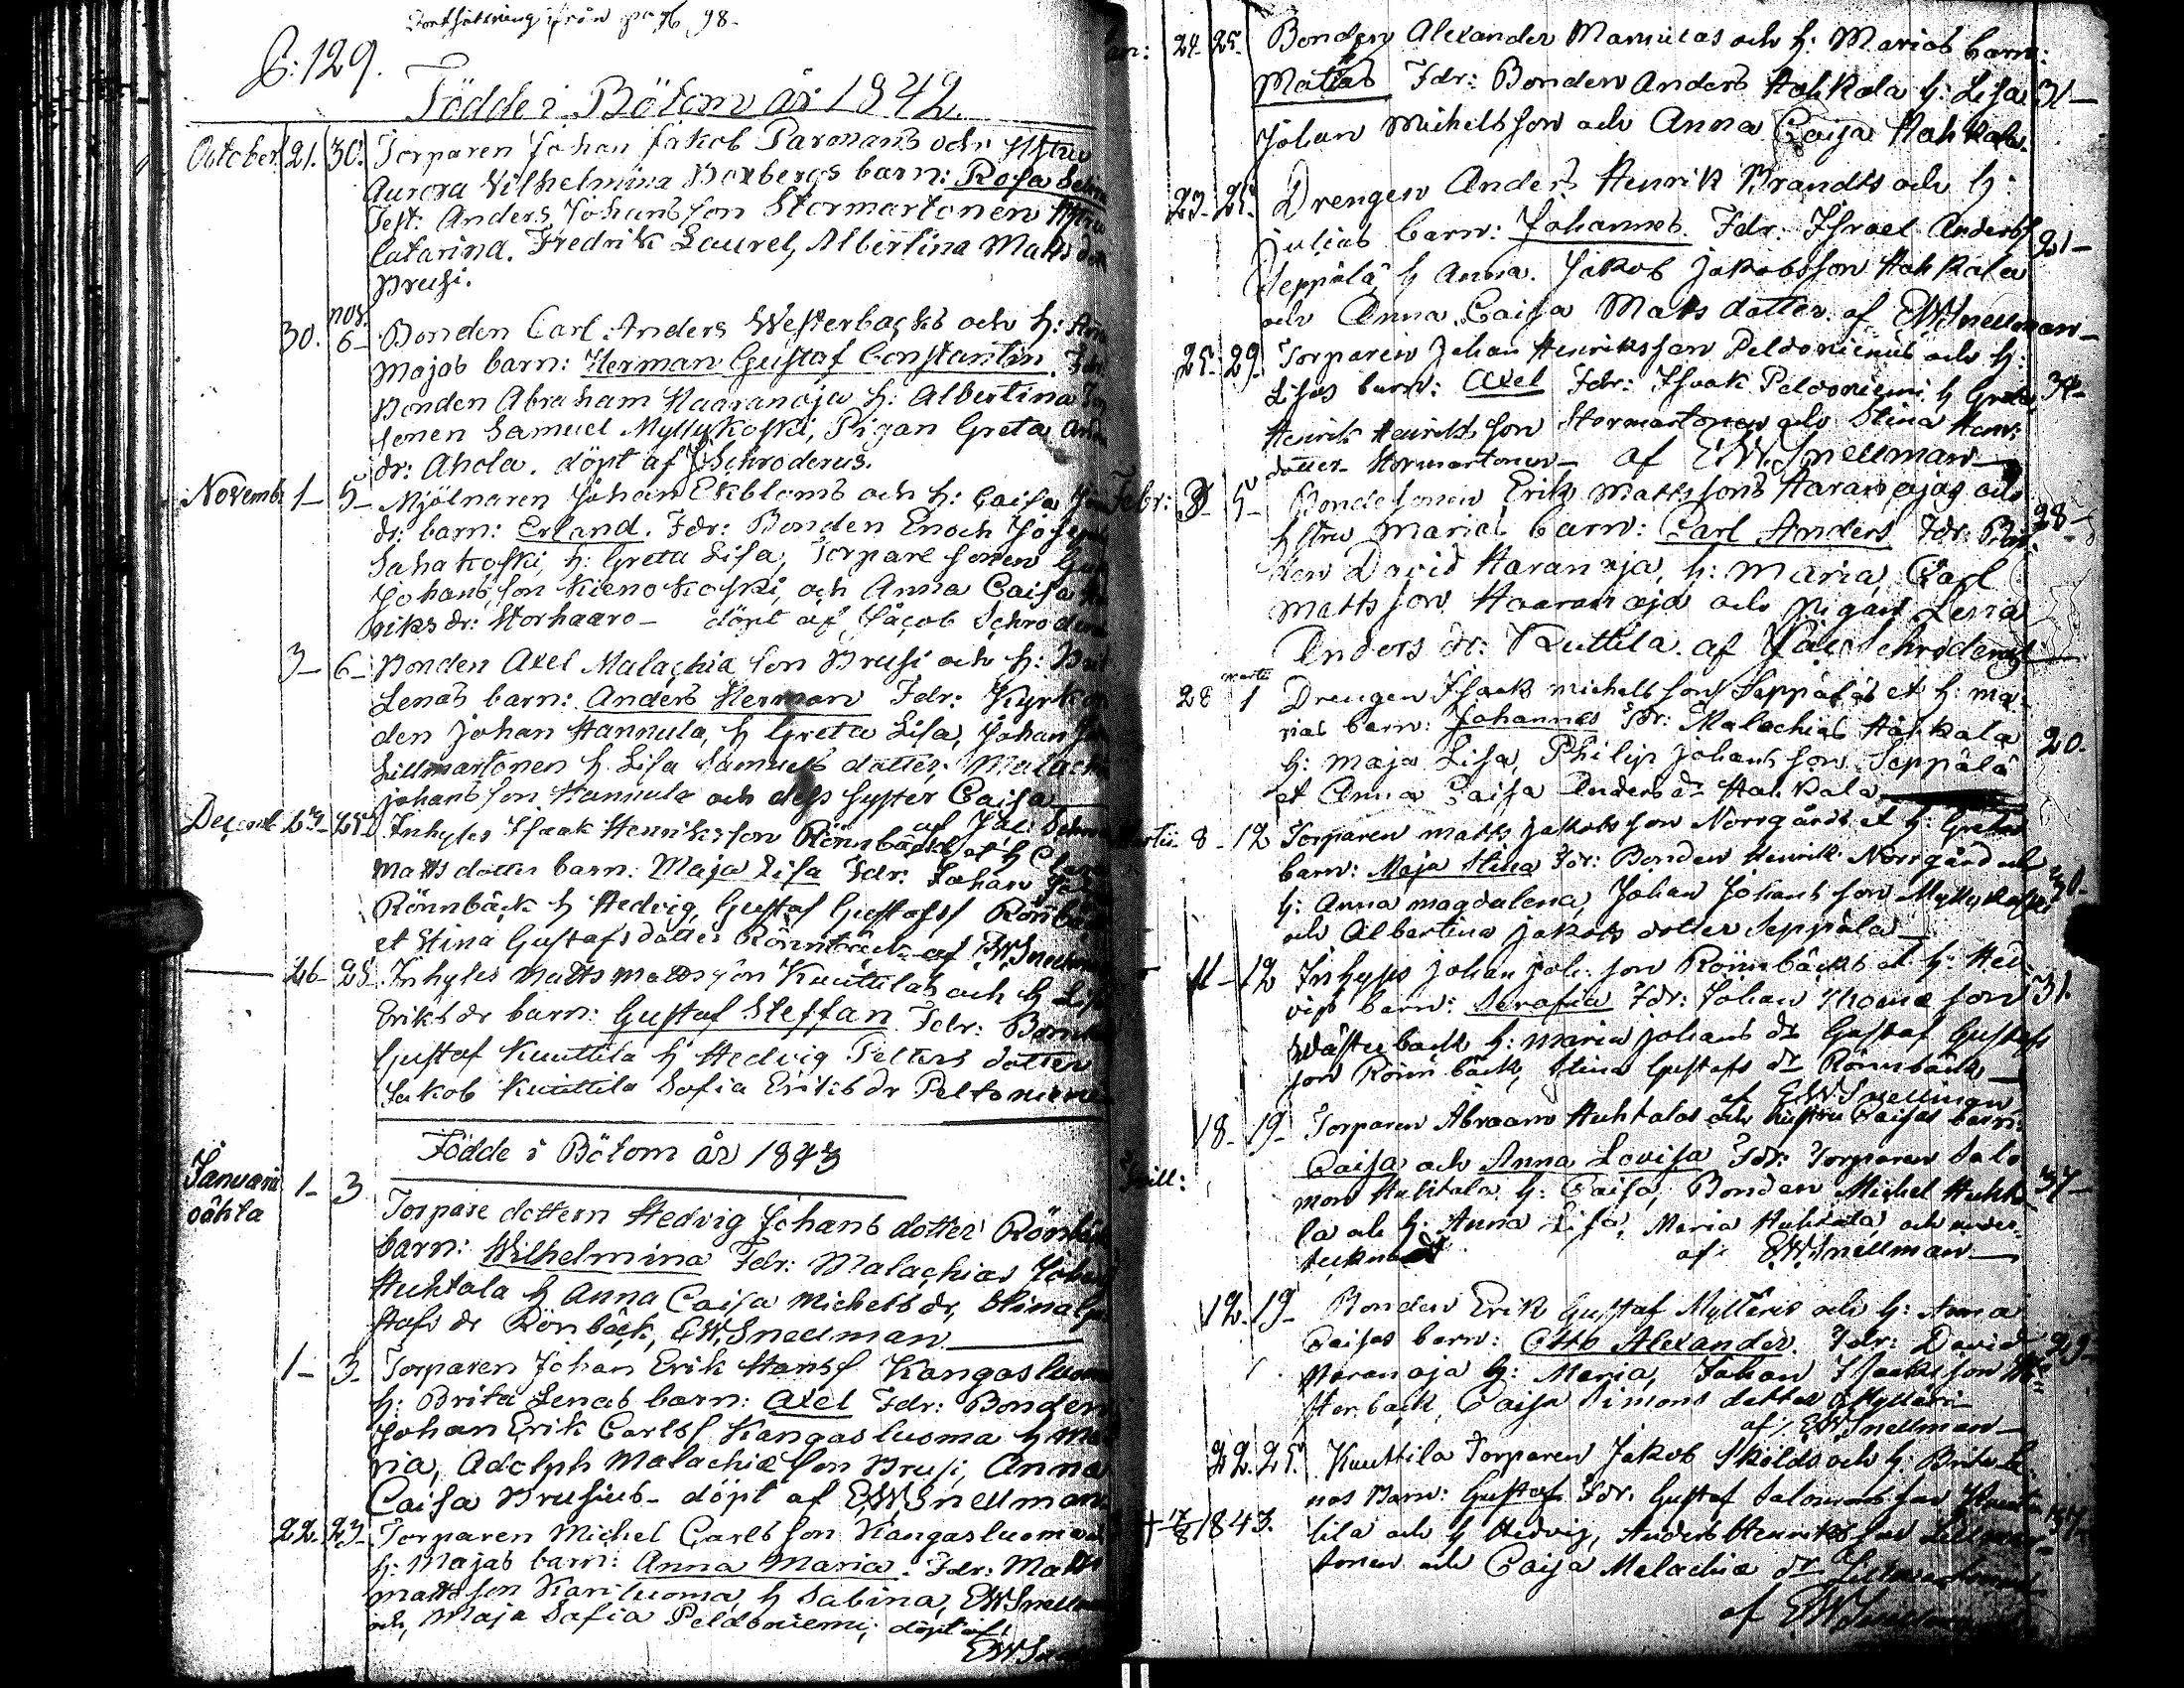 Fortsättning ifrån pag 98.
S: 129.
Födde i Bötom år 1842.
October 21. 30. Torparen Johan Jakob Paronans och Hstru
Aurora Wilhelmina Boxbergs barn: Rosa Selin
Test: Anders Johansson Stormartonen Hstru
Catarina. Fredrik Laurel, Albertina Matts dotr
Prusi.
30. nov. 6- Bonden Carl Anders Westerbacks och h: Ann
Majas barn: Herman Gustaf Constantin. Fdr:
Bonden Abraham Haaranoja h: Albertina
sonen Samuel Myllykoski, Pigan Greta And
dr: Ahola. döpt af J Schroderus.
Novemb 1- 5- Mjölnaren Johan Ekbloms och h: Caisa
dr: barn: Erland. Fdr: Bonden Enoch
Sahakoski, h: Greta Lisa, Torpare sonen
Johansson Kienokoski, och Anna Caisa
riks dr: Storhaaro- döpt af Jacob Schroderus
3- 6- Bonden Axel Malachiæ son Prusi och h: Brit
Lenas barn: Anders Herman Fdr: Kyrkov
den Johan Hannula, h Greta Lisa, Johan
Lillmartonen h. Lisa Samuels dotter, Malach
Johansson Hannula och dess syster Caisa
af Jac: Schro
Decemb 23- 25 Inhyses Isaak Henriksson Rönnbäcks et h
Matts dotter barn: Maja Lisa Fdr: Johan
Rönnbäck h Hedvig, Gustaf Gustafss Rönnbäck
et Stina Gustafs dotter Rönnbäck af EWSnellman
26- 28 Inhyses Matts Mattsson Kuuttilas och h Lisa
Eriks dr barn: Gustaf Steffan Fdr: Bonden
Gustaf Kuuttila h Hedvig Petters dotter
Jakob Kuuttila Sofia Eriks dr Peltoniemi
Födde i Bötom år 1843
Januari 1- 3 Torpare dottern Hedvig Johans dotter Rönbäck
oäkta barn: Wilhelmina Fdr: Malachias Johans
Huhtala h Anna Caisa Michels dr, Stina Gu
stafs dr Rönbäck, EWSnellman
1- 3. Torparen Johan Erik Hanss Kangasluoma
h: Brita Lenas barn: Axel Fdr: Bonden
Johan Erik Carlss Kangasluoma h Ma
ria, Adolph Malachiæ son Prusi, Anna
Caisa Prusius- döpt af EWSnellman
22. 23- Torparen Michel Carlsson Kangasluoma
h: Majas barn: Anna Maria. Fdr: Matts
Mattsson Kariluoma, h Sabina, EWSnellman
och, Maja Safia Peldoniemi, döpt af
EWSn
an: 24- 25- Bonden Alexander Mamulas och h: Marias barn:
Mattias Fdr: Bonden Anders Hahkala h: Lisa 31-
Johan Michelsson och Anna Caisa Hahkala.
23- 25- Drengen Anders Henrik Brandts och h:
Julias barn: Johannes. Fdr: Israel Anderss 21-
Seppälä h Anna. Jakob Jakobsson Hahkala
och Anna Caisa Matts dotter. af EWSnellman-
25- 29. Torparen Johan Henriksson Peldoniemis och h:
Lisas barn: Axel Fdr: Isaak Peldoniemi h Greta, 34-
Henrik Henriksson Stormartonen och Stina Hen:
dotter Stormartonen- af EWSnellman-
Febr: 3- 5- Bondesonen Erik Mattssons Haranojas och
hstru Marias barn: Carl Anders Fdr: Bon 28-
den David Haranoja, h: Maria, Carl
Mattsson Haaranoja och pigan Lena
Anders dr: Kuttila. af Jac Schroderus
28 martii 1 Drengen Isack Michelssons Seppäläs et h: Ma
rias barn: Johannes Fdr: Malachias Hahkala 20-
h: Maja Lisa, Philip Johansson Seppälä
et Anna Caisa Anders dr Hahkala
Martii 8- 12 Torparen Matts Jakobsson Norrgårds et h: Gretas
barn: Maja Stina Fdr: Bonden Henrik Norrgård och 30-
h: Anna Magdalena, Johan Johansson Myllykoski
och Albertina Jakobs dotter Seppälä-
11- 12 Inhyses Johan Joh: son Rönnbäcks et h: Hed
vigs barn: Serafia Fdr: Johan Thomæ son 31.
Wästerback h: Maria Johans dr Gustaf Gustafs
son Rönnbäck, Stina Gustafs dr Rönnbäck-
af EWSnellman
18- 19- Torparen Abraam Huhtalas och hustru Caisas barn:
Tvill: Caisa och Anna Lovisa Fdr: Torparen Salo
mon Huhtala, h: Caisa, Bonden Michel Huhta 37-
la och h: Anna Lisa, Maria Huhtala och under-
tecknad af EWSnellman-
12- 19- Bonden Erik Gustaf Mylläris och h: Anna
Caisas barn: Otto Alexander. Fdr: David 29-
Haranoja h: Maria, Johan Isaksson We
sterback, Caisa Simons dotter Mylläri-
af EWSnellman-
22. 25. Kuuttila Torparen Jakob Skölds och h: Brita Le
nas Barn: Gustaf Fdr: Gustaf Salomonsson Kuut
+ 7/8 1843. tila och h Hedvig, Anders Henriksson Lillmar- 37
tonen och Caisa Malachiæ dr Lillmartonen
af EWSnellman